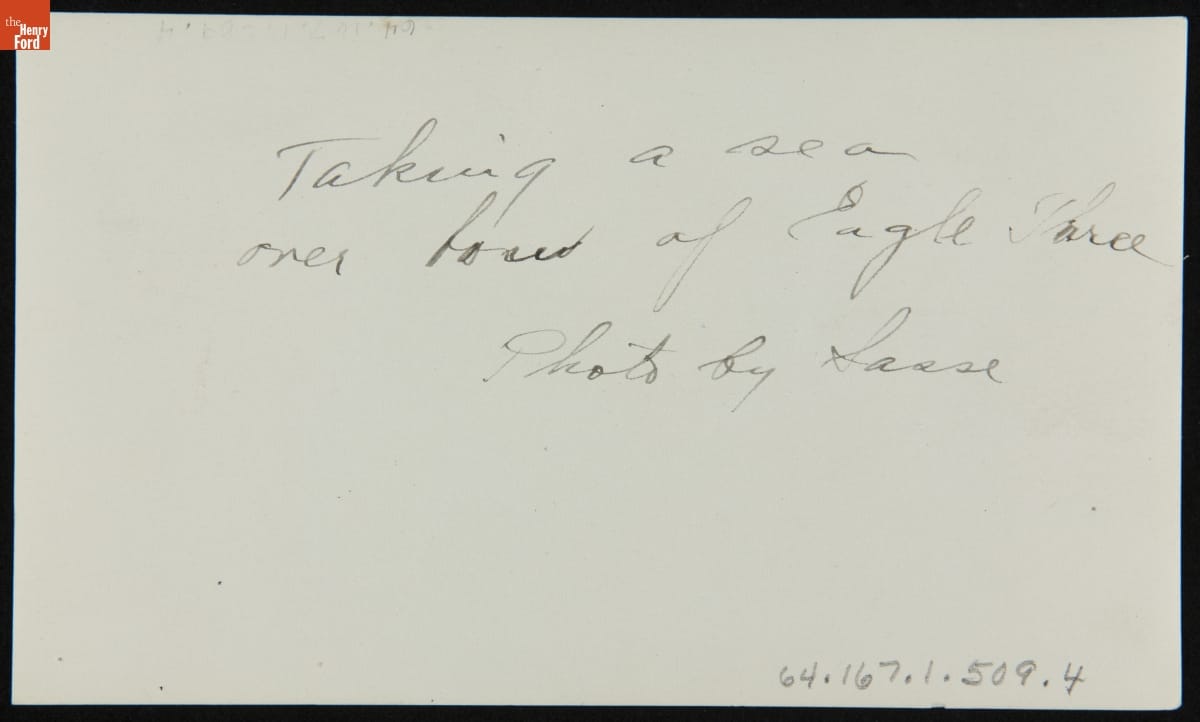 the
Henry
Ford
Taking a sea
over bow of Eagle Three
Photo by Sasse
64.167.1.509.4